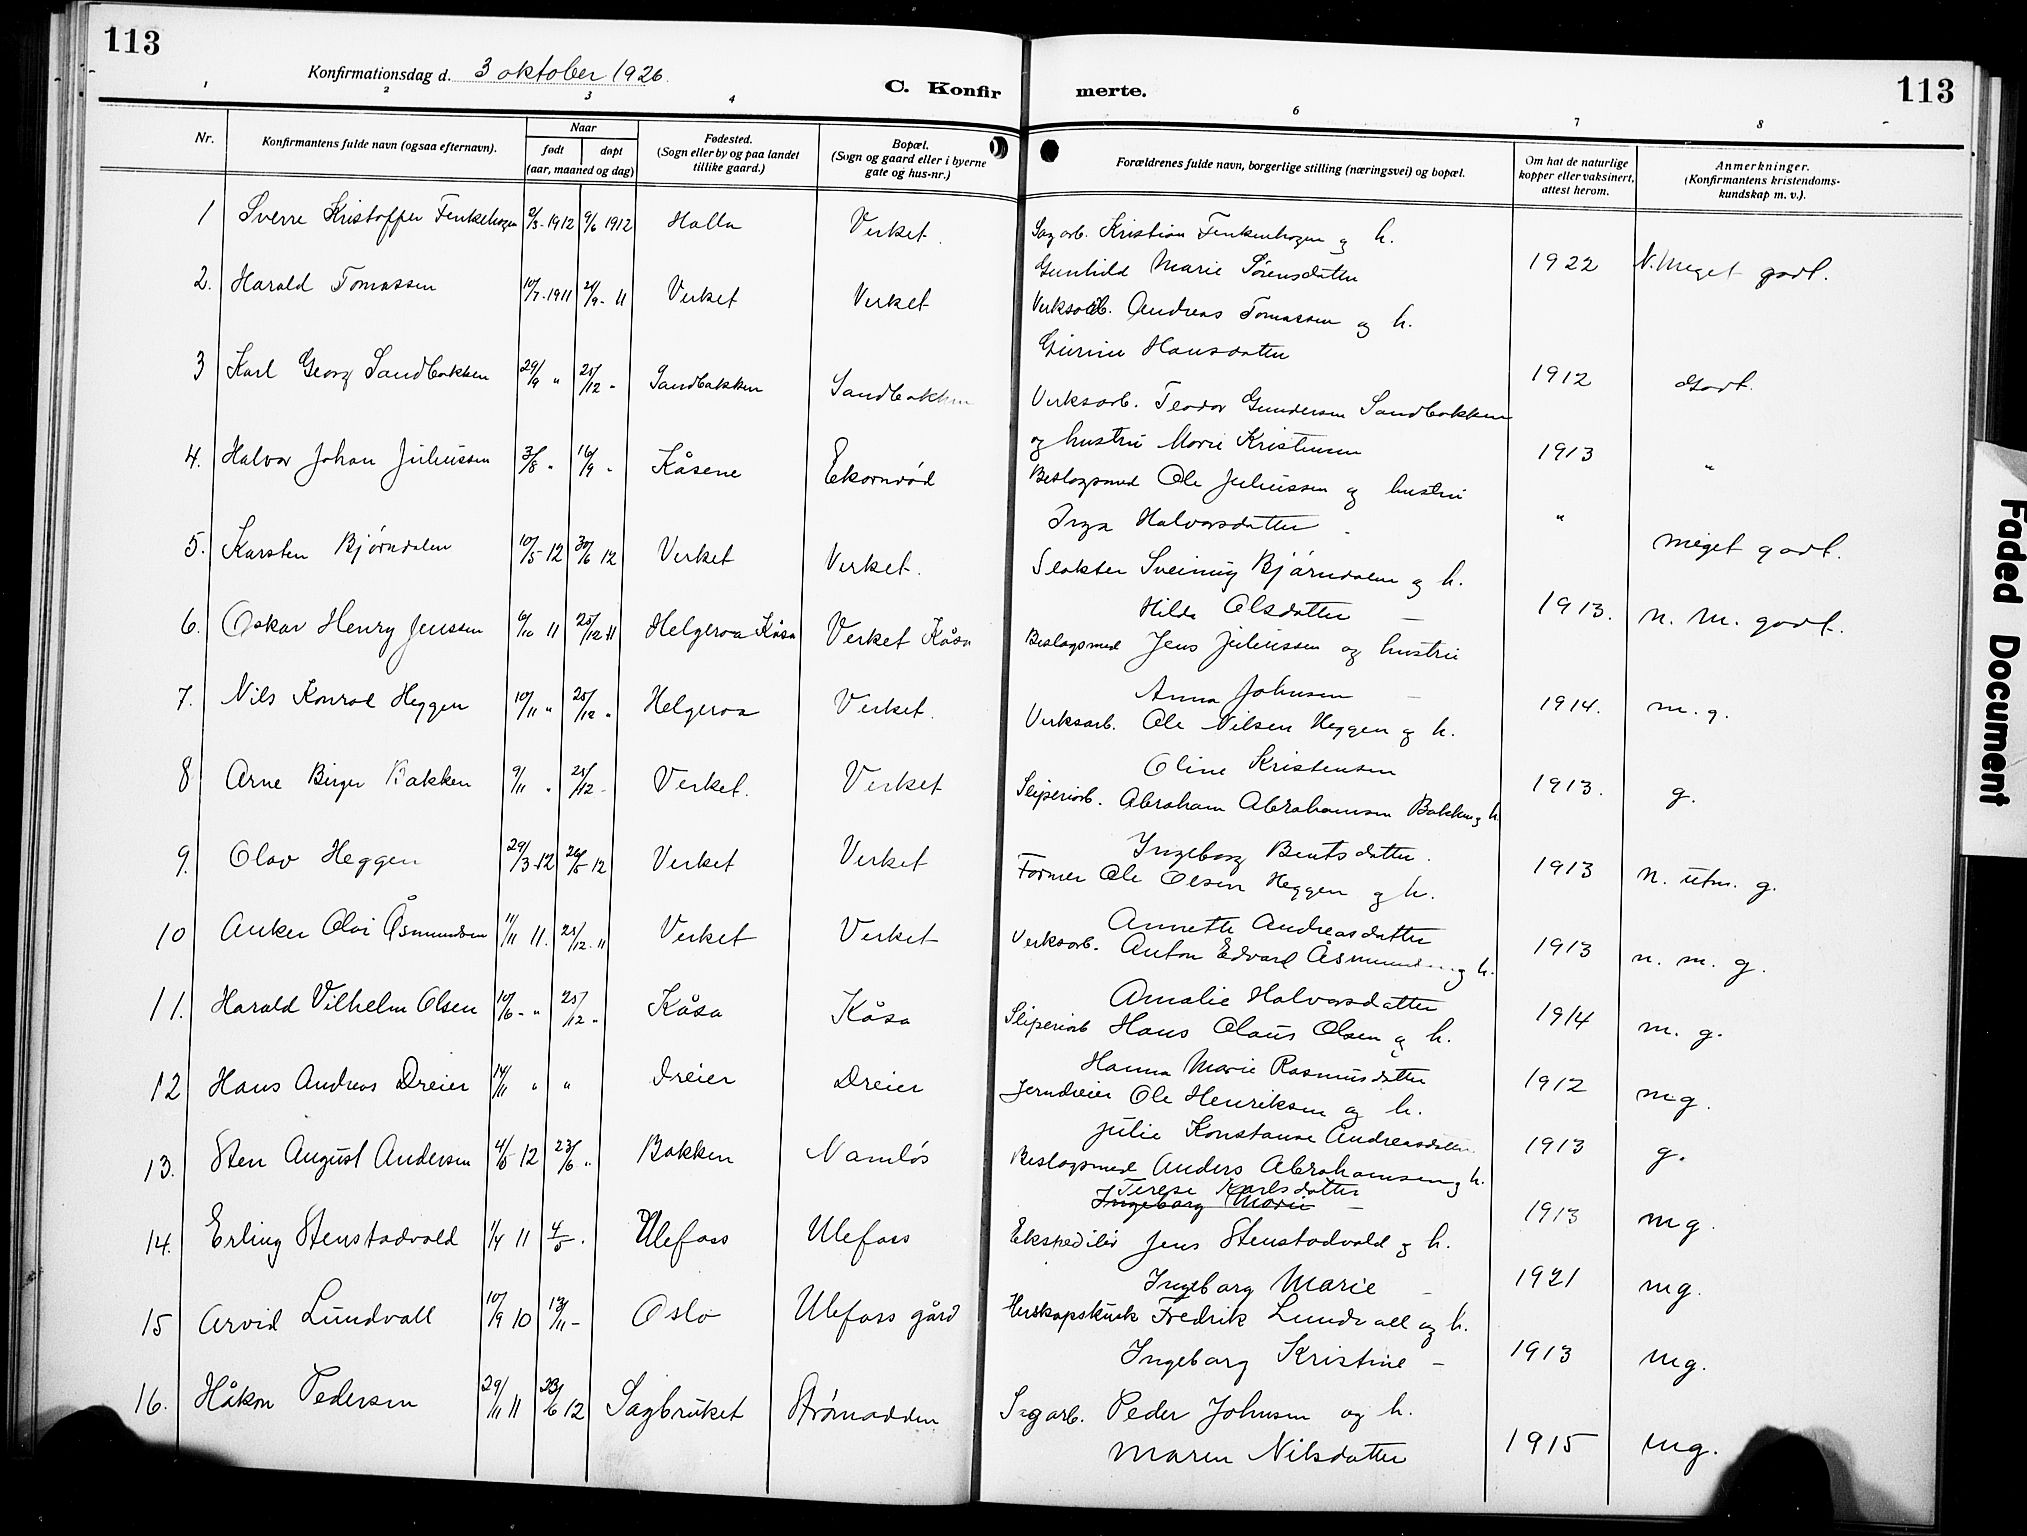 113
Konfirmationsdag d. 3 oktober 1926.
C. Konfirmerte.
113
1 2 3 4 6 7 8
Nr.
Konfirmantens fulde navn (ogsaa efternavn).
Naar
født
døpt
(aar, maaned og dag)
Fødested.
(Sogn eller by og paa landet
tillike gaard.)
Bopæl.
(Sogn og gaard eller i byerne
gate og hus-nr.)
Forældrenes fulde navn, borgerlige stilling (næringsvei) og bopæl.
Om hat de naturlige
kopper eller vaksinert,
attest herom.
Anmerkninger.
(Konfirmantens kristendoms-
kundskap m. v.).
1 Sverre Kristoffer Finkehogen 2/3-1912 9/6 1912 Holla Verket. Sagarb. Kristian Finkenhogen og h.
Gunhild Marie Sørensdatter 1922 N. Meget godt.
2. Harald Tomassen 10/7-1911 24/9-11 Verket Verket Verksarb. Andreas Tomassen og h.
Gurine Hansdatter 1912 Godt.
3 Karl Georg Sandbakken 29/9 " 25/12 " Sandbakken Sandbakken Verksarb. Teodor Gundersen Sandbakken
og hustru Marie Kristensen 1913 "
4. Halvor Johan Juliussen 3/8 " 16/9 " Kåsene Ekornrød Beslagsmed Ole Juliussen og hustru
Inga Halvorsdatter. " Meget godt.
5. Karsten Bjørndalen 10/5-12 30/6 12 Verket Verket. Slakter Sveinung Bjørndalen og h.
Hilda Olsdatter 1913. N. M. godt.
6. Oskar Henry Jenssen 6/10 11 25/12 11 Helgeroa Kåsa Verket Kåsa Beslagsmed Jens Juliussen og hustru
Anna Johnsen 1914. M. g.
7. Nils Konrad Heggen 10/11 " 25/12 " Helgeroa Verket. Verksarb. Ole Nilsen Heggen og h.
Oline Kristensen 1913. g.
8 Arne Birger Bakken 9/11 " 25/12 - Verket. Verket Sliperiarb. Abraham Abrahamsen Bakken og h.
Ingeborg Bentsdatter. 1913 N. utm. g.
9. Olav Heggen 29/3-12 26/5 12 Verket Verket Former Ole Olsen Heggen og h.
Annette Andreasdatter 1913 n. m. g.
10 Anker Olai Åsmundsen 11/11 11. 25/12-11 Verket Verket Verksarb. Anton Edvard Åsmundsen og h.
Amalie Halvorsdatter 1914 m. g.
11. Harald Vilhelm Olsen 10/6- " 25/12 " Kåsa Kåsa Sliperiarb Hans Olaus Olsen og h.
Hanna Marie Rasmusdatter 1912 mg.
12 Hans Andreas Dreier 14/11 " " Dreier Dreier Jerndreier Ole Henriksen og h.
Julie Konstanse Andreasdatter. 1913 g.
13. Sten August Andersen 4/5 12 23/6 " Bakken Namløs Beslagsmed Anders Abrahamsen og h.
Terese Karlsdatter
Ingeborg Marie 1913 mg.
14. Erling Stenstadvold 1/4 11 4/5 . Ulefoss Ulefoss Ekspeditør Jens Stenstadvold og h.
Ingeborg Marie - 1921 mg.
15 Arvid Lundvall 10/9 10 13/11 - Oslo Ulefoss gård Herskapskusk Fredrik Lundvall og h.
Ingeborg Kristine - 1913 mg.
16. Håkon Pedersen 29/11 11 23/6 12 Sagbruket Strømodden Sagarb. Peder Johnsen og h.
Maren Nilsdatter 1915 mg.
Faded Document